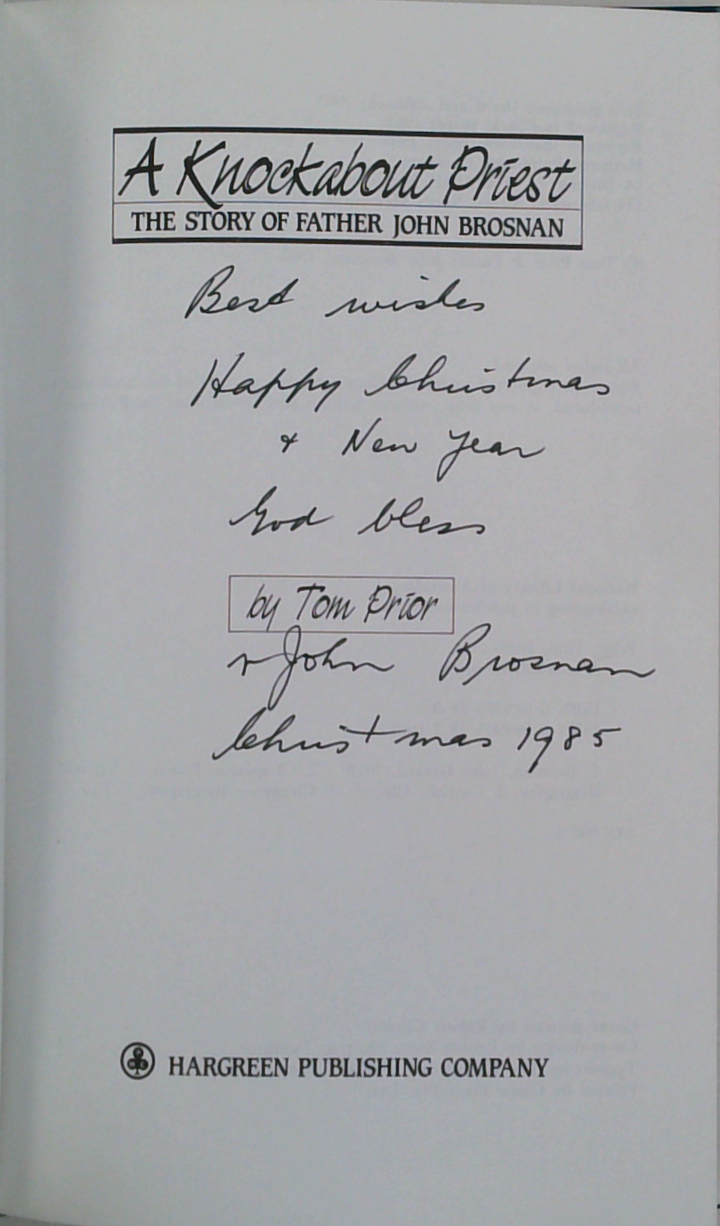 A Knockabout Priest
THE STORY OF FATHER JOHN BROSNAN
Best wishes
Happy Christmas
& New Year
God bless
by Tom Prior
+ John Brosnan
Christmas 1985
HARGREEN PUBLISHING COMPANY